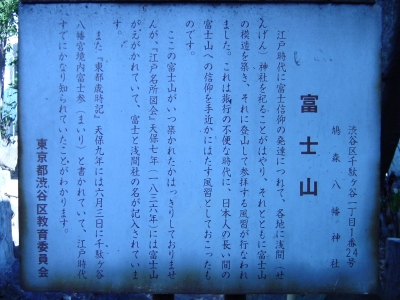 渋谷区千駄ヶ谷一丁目1番24号
鳩森八幡神社
富士山
江戸時代に富士信仰の発達につれて、各地に浅間（せ
んげん）神社を祀ることがはやり、それとともに富士山
の模造を築き、それに登山して参拝する風習が行なわれ
ました。これは旅行の不便な時代に、日本人の長い間の
富士山への信仰を手近かにはたす風習としておこったも
のです。
ここの富士山がいつ築かれたかはっきりしておりませ
んが、『江戸名所図会』天保七年（一八三六年）には富士山
がえがかれていて、富士と浅間社の名が記入されていま
す。
また『東都歳時記』天保九年には六月三日に千駄ヶ谷
八幡宮境内富士参（まいり）と書かれていて、江戸時代
すでにかなり知られていたことがわかります。
東京都渋谷区教育委員会